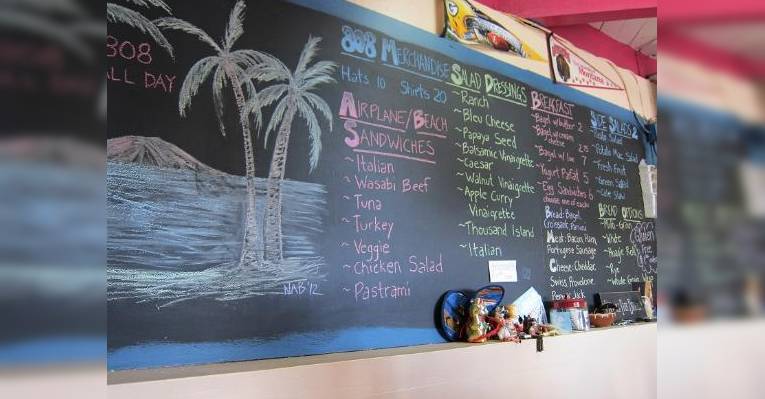 808
ALL DAY
NAB '12
808 MERCHANDISE
Hats 10 Shirts 20
AIRPLANE/BEACH
SANDWICHES
~Italian
~Wasabi Beef
~Tuna
~Turkey
~Veggie
~Chicken Salad
~Pastrami
SALAD DRESSINGS
~Ranch
~Bleu Cheese
~Papaya Seed
~Balsamic Vinaigrette
~Caesar
~Walnut Vinaigrette
~Apple Curry
Vinaigrette
~Thousand Island
~Italian
BREAKFAST
~Bagel w/butter 2
~Bagel w/cream
cheese
~Bagel w/ lox 7
~Yogurt Parfait 5
~Egg Sandwiches 6
choose one of each
Bread: Bagel,
Croissant,
Meat: Bacon, Ham,
Portuguese Sausage
Cheese: Cheddar,
Swiss, Provolone
Pepper Jack
SIDE SALADS 2
~Potato Mac Salad
~Fresh Fruit
~Green Salad
~Cole Slaw
BREAD OPTIONS
~Multi-Grain
~White
~Rye
Gluten
Free